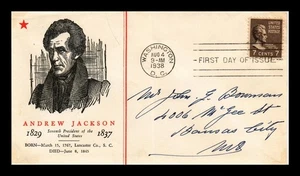 WASHINGTON
AUG 4
9-AM
1938
D.C.
FIRST DAY OF ISSUE
7 CENTS 7
ANDREW JACKSON
1829 Seventh President of the United States 1837
BORN—March 15, 1767, Lancaster Co., S. C.
DIED—June 8, 1845
Mr John G.
4006 McGee St
Kansas City
Mo